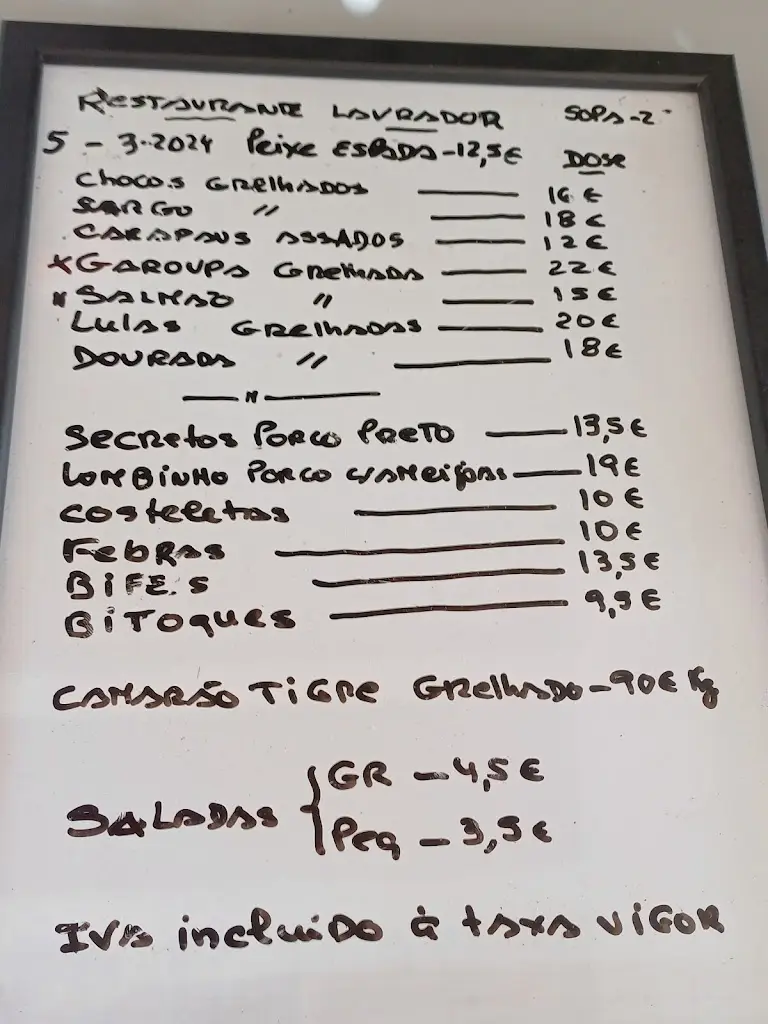 RESTAURANTE LAVRADOR SOPA-2
5 - 3-2024 Peixe ESPADA-12,5€ DOSE
CHOCOS GRELHADOS —— 16 €
SARGO " —— 18 €
CARAPAUS ASSADOS —— 12 €
*GAROUPA GRELHADA —— 22 €
SALMÃO " —— 15 €
LULAS GRELHADAS —— 20 €
DOURADA " —— 18 €
—— " ——
SECRETOS PORCO PRETO —— 13,5 €
LOMBINHO PORCO C/AMEIJOAS —— 19 €
COSTELETAS —— 10 €
FEBRAS —— 10 €
BIFES —— 13,5 €
BITOQUES —— 9,5 €
CAMARÃO TIGRE GRELHADO-90€ Kg
SALADAS { GR - 4,5 €
Peq - 3,5 €
IVA incluido à taxa VIGOR